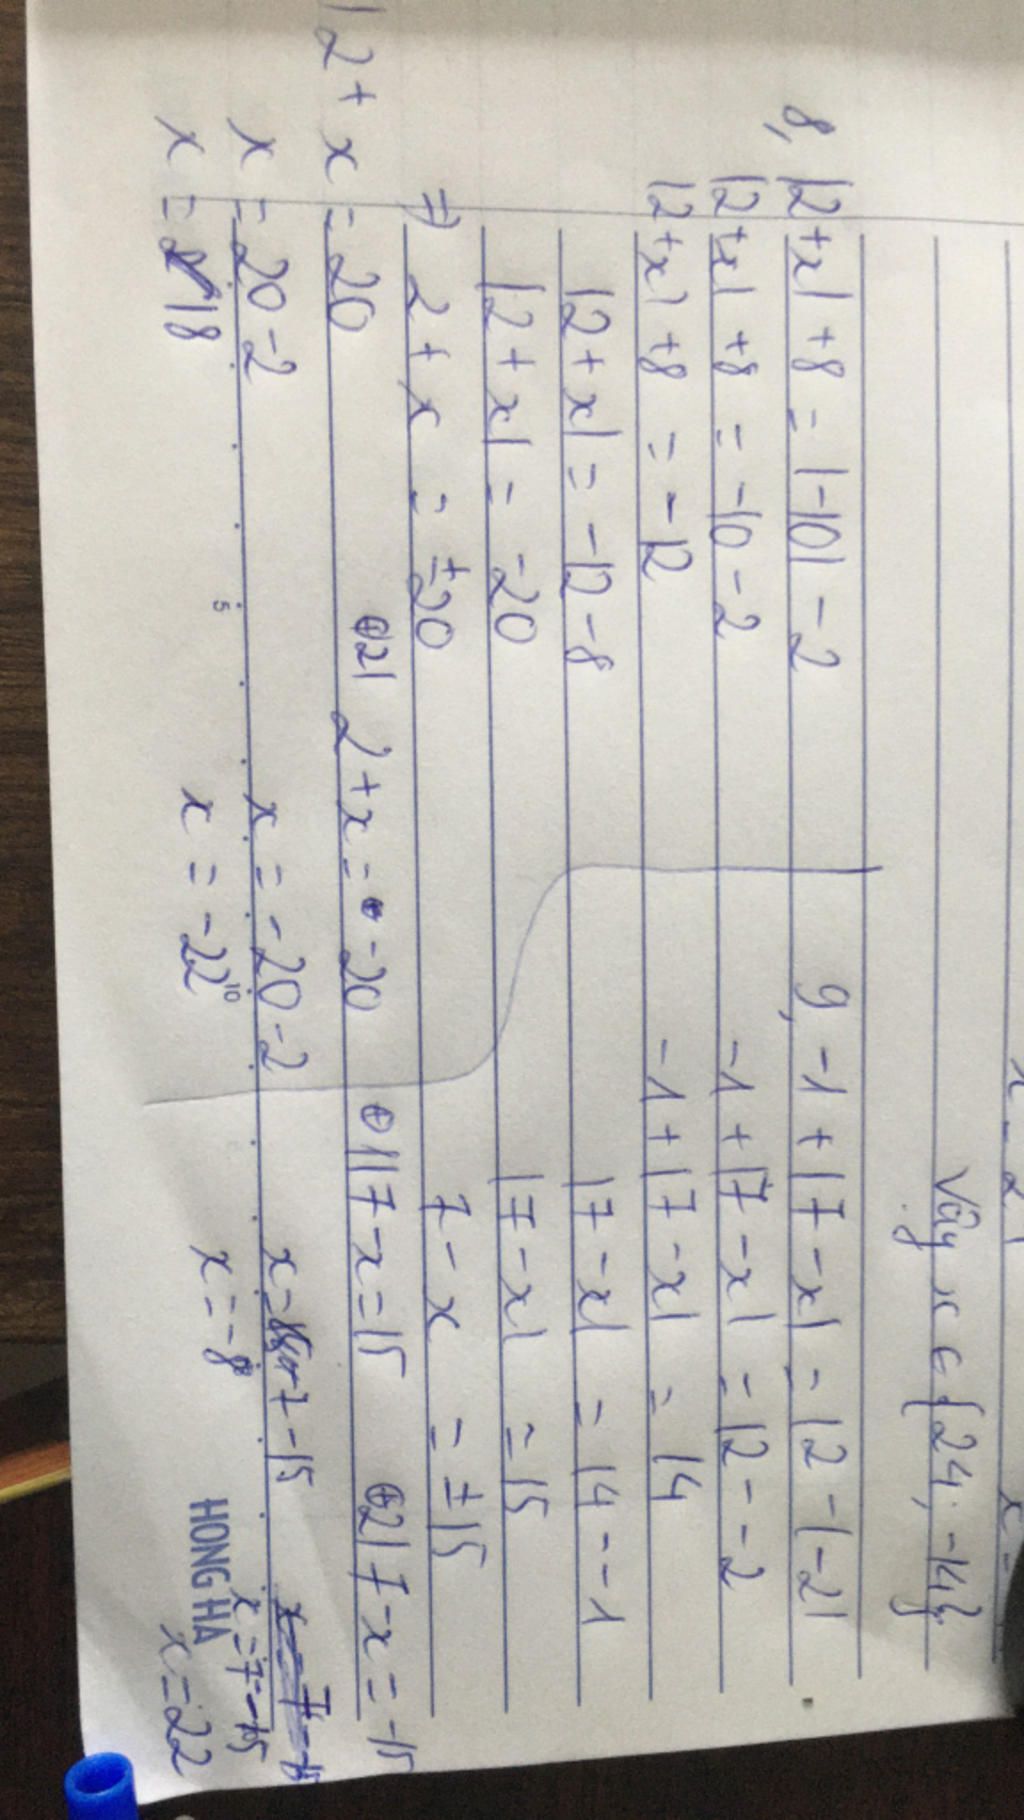 Vậy x ∈ {24; -14}
8, |2+x| +8 = |-10| - 2
|2+x| +8 = -10 - 2
|2+x| +8 = -12
|2+x| = -12 - 8
|2+x| = -20
=) 2+x = ±20
2+x = 20
x = 20 - 2
x = 18
⊕2) 2+x = -20
x = -20 - 2
x = -22
9, -1 + |7-x| = 12 - |-2|
-1 + |7-x| = 12 - -2
-1 + |7-x| = 14
|7-x| = 14 - -1
|7-x| = 15
7 - x = ±15
⊕1) 7-x = 15
x = 7 - 15
x = -8
⊕2) 7-x = -15
x = 7 - -15
x = 22
5
10
HONG HA